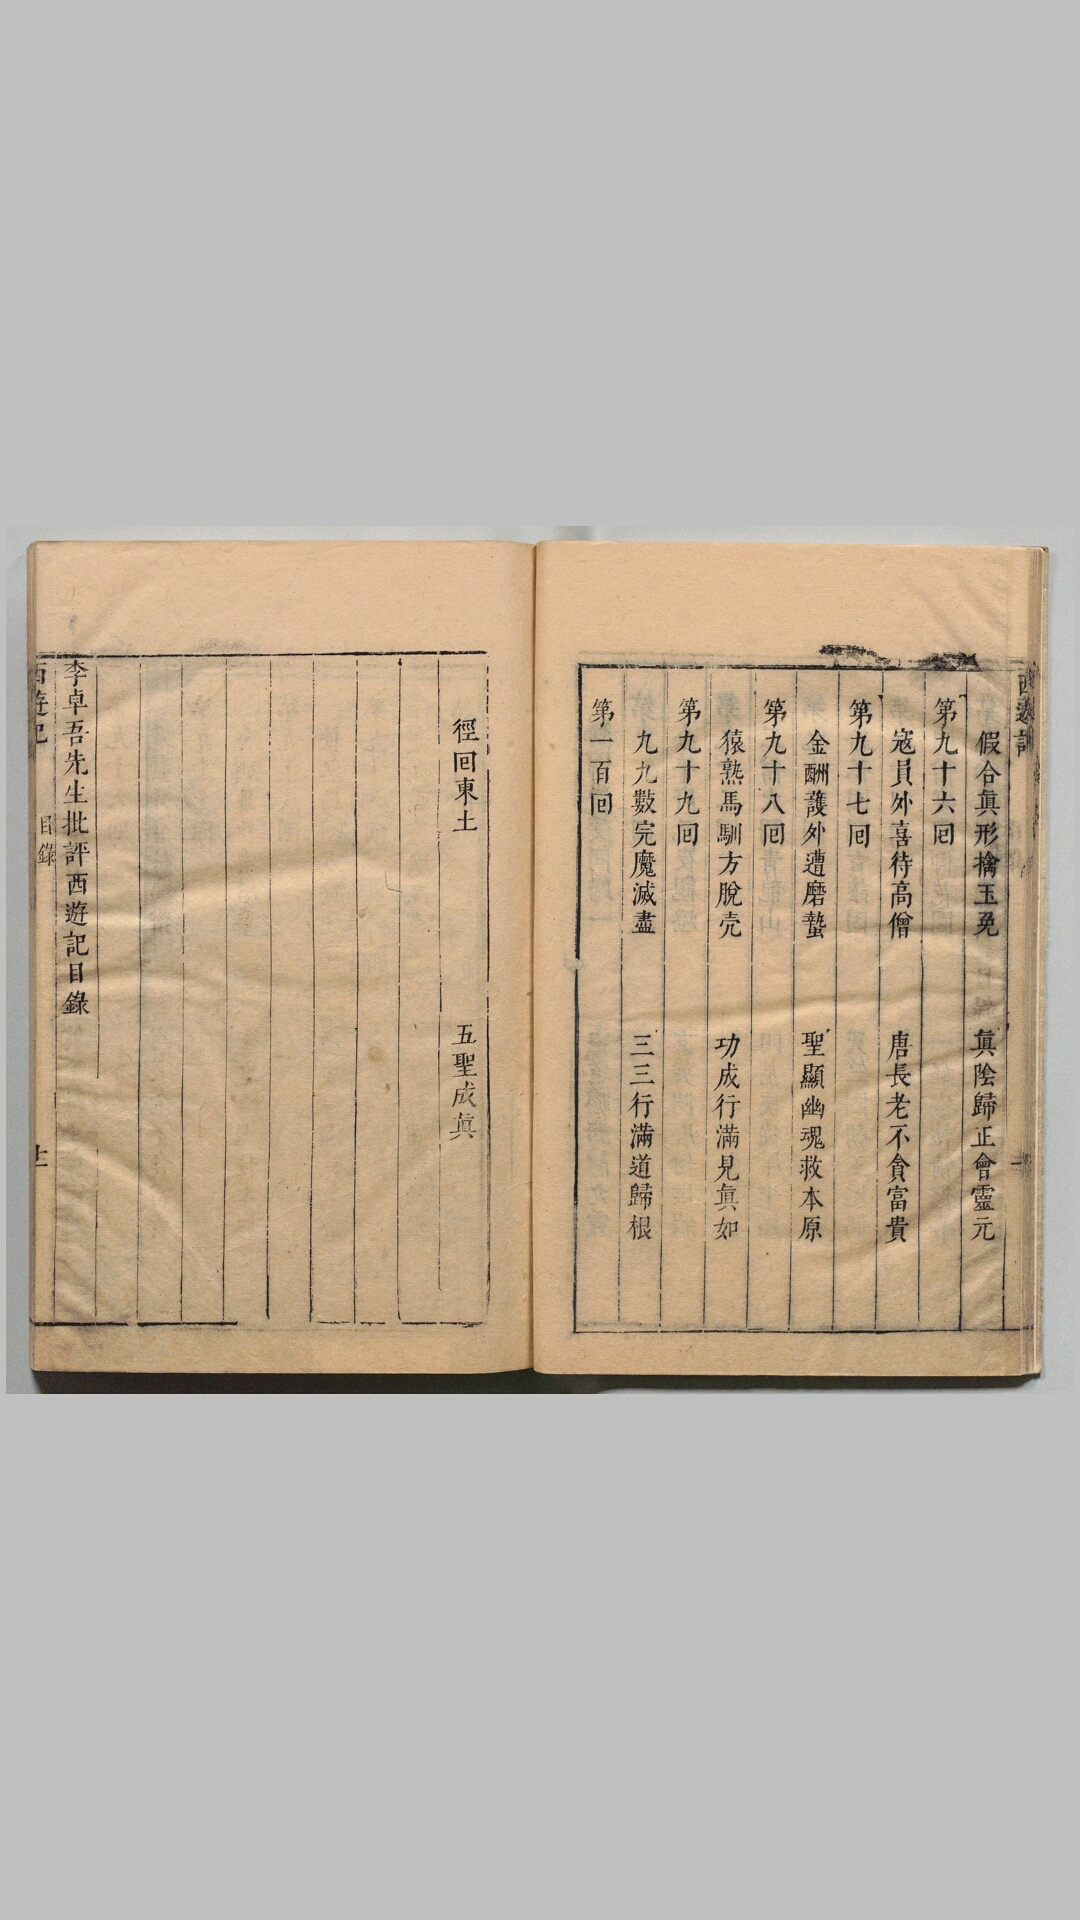 假合眞形擒玉兔　眞陰歸正會靈元
第九十六囘
寇員外喜待高僧　唐長老不貪富貴
第九十七囘
金酬護外遭磨蟄　聖顯幽魂救本原
第九十八囘
猿熟馬馴方脫壳　功成行滿見眞如
第九十九囘
九九數完魔滅盡　三三行滿道歸根
第一百囘
徑囘東土　五聖成眞
李卓吾先生批評西遊記目錄
西遊記　目錄